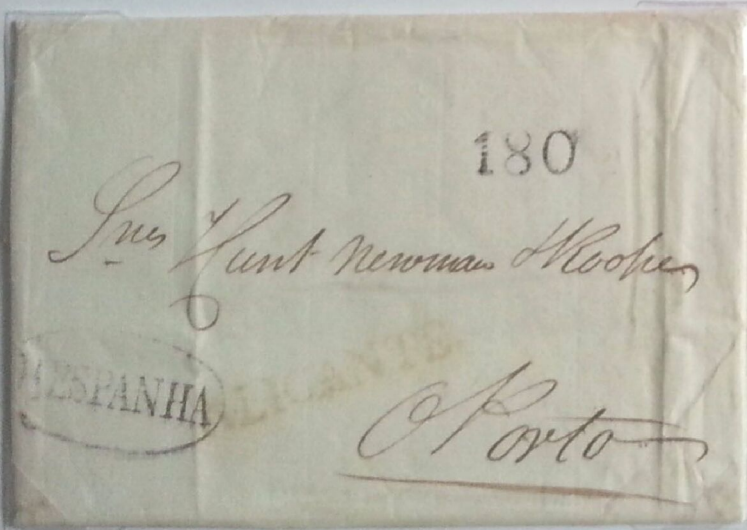 180
Snes Hunt Newman & Roope
HESPANHA
ALICANTE
OPorto